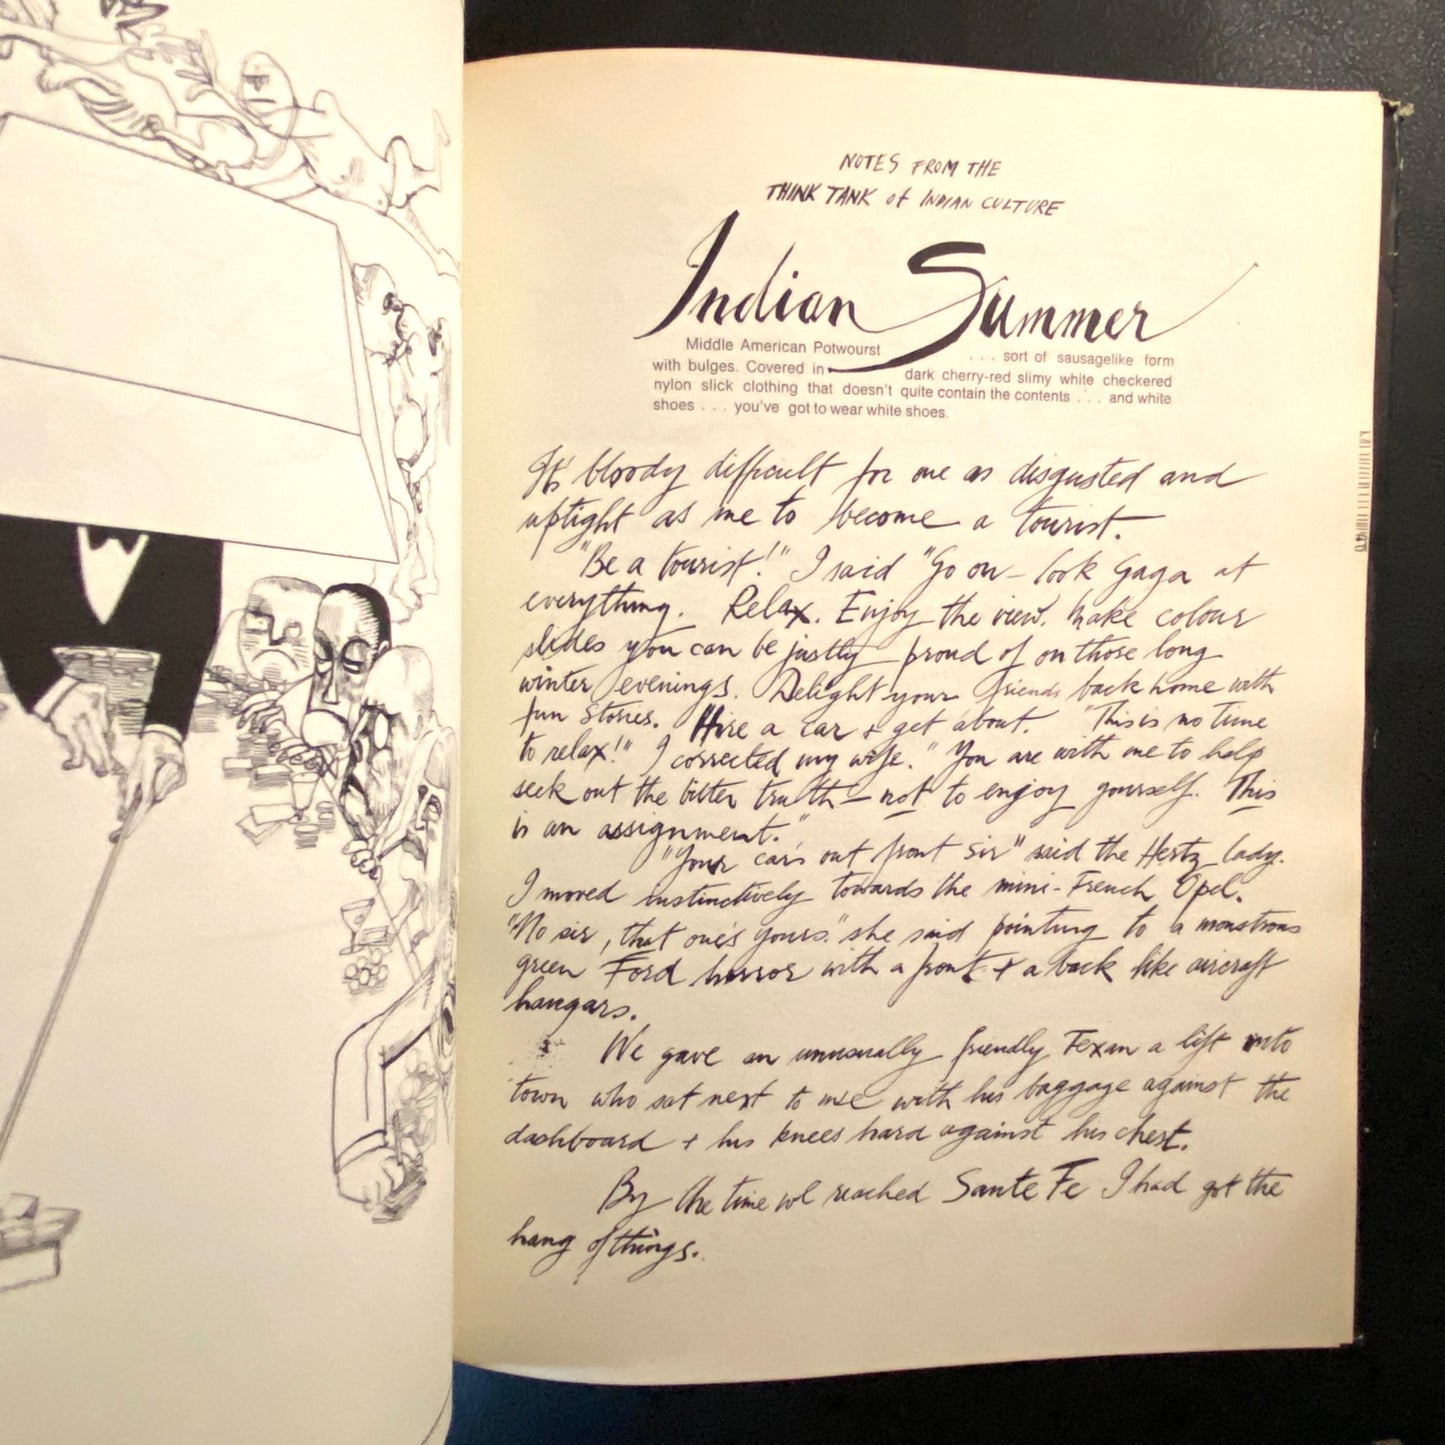 NOTES FROM THE
THINK TANK of INDIAN CULTURE
Indian Summer
Middle American Potwourst . . . sort of sausagelike form
with bulges. Covered in dark cherry-red slimy white checkered
nylon slick clothing that doesn't quite contain the contents . . . and white
shoes . . . you've got to wear white shoes.
It's bloody difficult for one as disgusted and
uptight as me to become a tourist.
"Be a tourist!" I said "Go on – look Gaga at
everything. Relax. Enjoy the view. Make colour
slides you can be justly proud of on those long
winter evenings. Delight your friends back home with
fun stories. Hire a car + get about. "This is no time
to relax!" I corrected my wife. "You are with me to help
seek out the bitter truth – not to enjoy yourself. This
is an assignment."
"Your car's out front Sir" said the Hertz lady.
I moved instinctively towards the mini-French Opel.
"No sir, that one's yours." she said pointing to a monstrous
green Ford horror with a front + a back like aircraft
hangars.
We gave an unusually friendly Texan a lift into
town who sat next to me with his baggage against the
dashboard + his knees hard against his chest.
By the time we reached Sante Fe I had got the
hang of things.